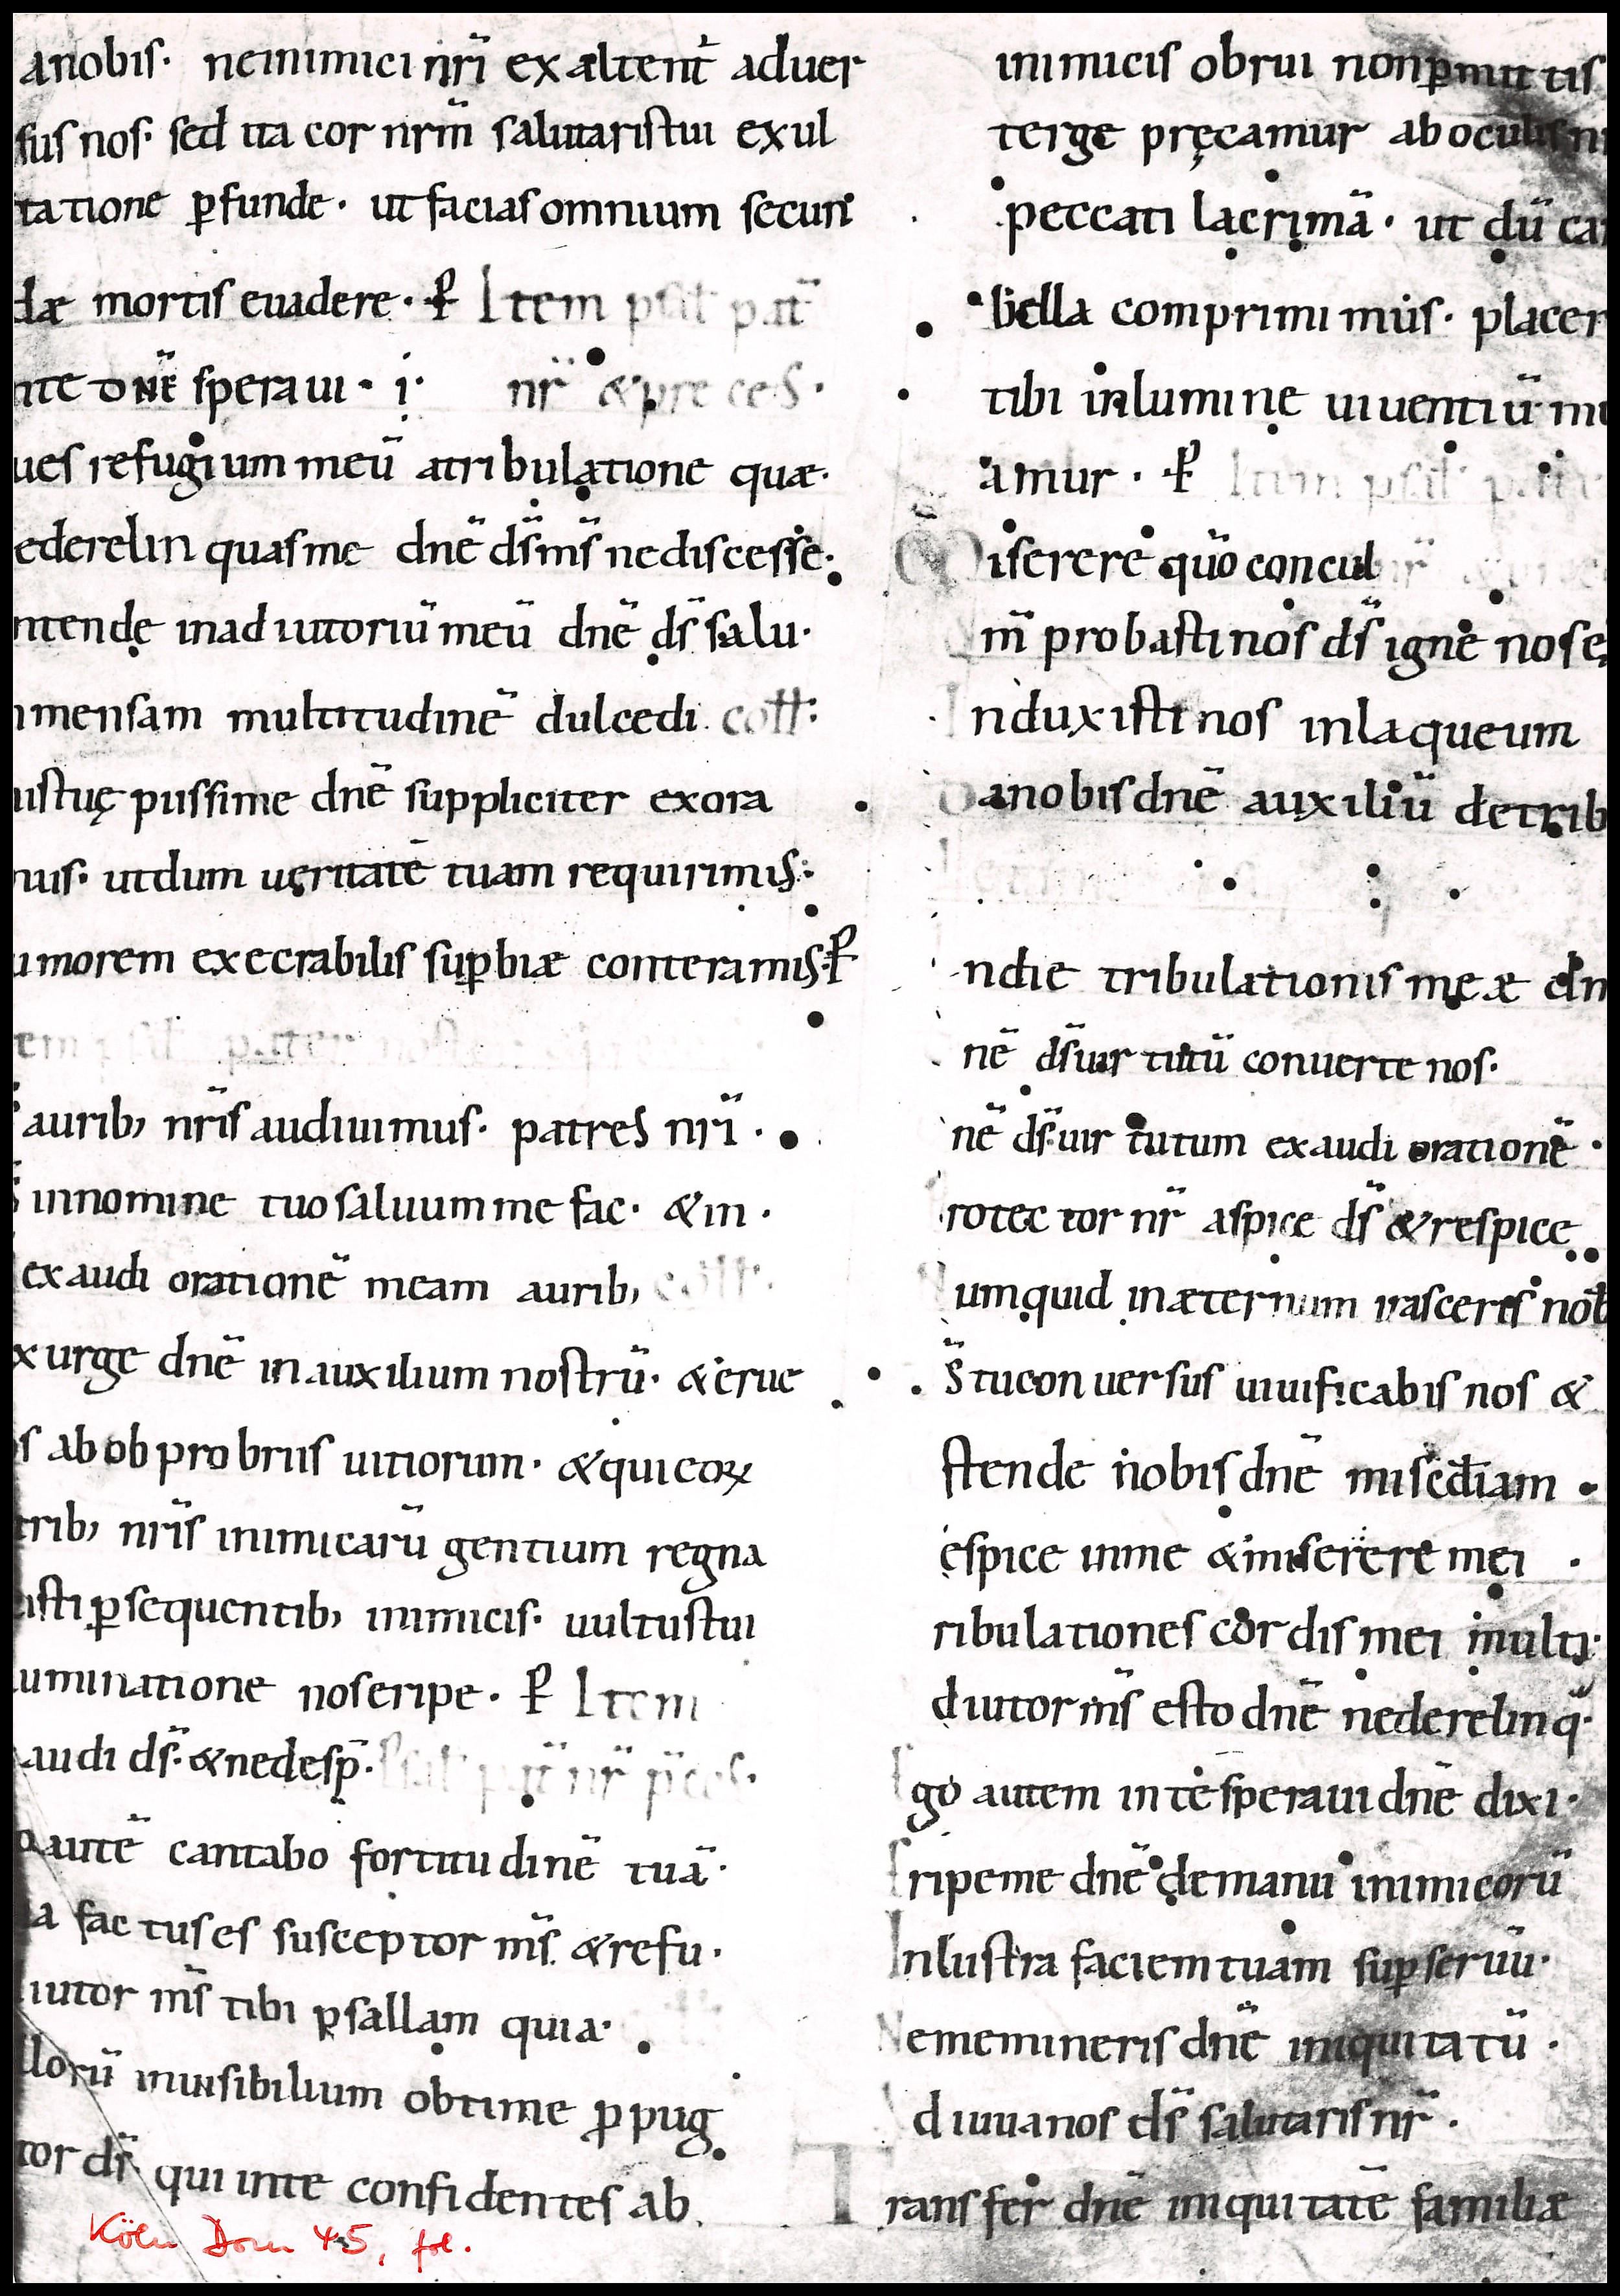 anobis· neinimici nr̄i exaltent̄ aduer
sus nos· sed ita cor nr̄m salutaristui exul
tatione ꝑfunde· ut facias omnium secun
dæ mortis euadere· ꝑ Item psal pat̄
nte dn̄e speraui· i· nr̄ & preces·
ues refugium meū atribulatione quæ·
ederelin quasme dn̄e ds̄ ms̄ nediscesse·
ntende inadiutoriū meū dn̄e ds̄ salu·
mensam multitudinē dulcedi coll:
uistuę piissime dn̄e suppliciter exora
mus· utdum ueritatē tuam requirimus:
umorem execrabilis suꝑbiæ conteramus· ꝑ
em psal pater
auribꝫ nr̄is audiuimus· patres nr̄i·
innomine tuo saluum me fac· & in·
exaudi orationē meam auribꝫ coll:
xurge dn̄e inauxilium nostrū· & erue
s ab obprobriis uitiorum· & qui eoꝝ
tribꝫ nr̄is inimicarū gentium regna
isti ꝑsequentibꝫ inimicis· uultustui
uminatione noseripe· ꝑ Item
audi ds̄· & nedesp̄· psal pat̄ nr̄ p̄ces·
o autē cantabo fortitudinē tuā·
ia factuses susceptor ms̄ & refu·
iutor ms̄ tibi psallam quia·
llorū inuisibilium obtime ꝓpug
tor ds̄· qui inte confidentes ab
Köln Dom 45, fol.
inimicis obrui nonꝑmittis
terge pręcamur ab oculis n
peccati lacrimā· ut dū ca
bella comprimimus· placer
tibi inlumine uiuentiū m
amur· ꝑ Item psal pat
Miserere qūo concul
m̄ probasti nos ds̄ igne nose
Induxisti nos inlaqueum
Danobis dn̄e auxiliū detrib
ndie tribulationis meæ dn
nē ds̄ uir tutū conuerte nos·
nē ds̄ uir tutum exaudi orationē·
rotector nr̄ aspice ds̄ & respice
Numquid inæternum irasceris nob
s̄ tu conuersus uiuificabis nos &
stende nobis dn̄e mised̄iam·
espice inme & miserere mei·
ribulationes cordis mei multi·
diutor ms̄ esto dn̄e nederelinq̄·
Ego autem inte speraui dn̄e dixi·
Eripe me dn̄e demanu inimicorū
Inlustra faciem tuam suꝑ seruū·
Nememineris dn̄e iniquitatū·
diuuanos ds̄ salutaris nr̄·
Transfer dn̄e iniquitatē familiæ